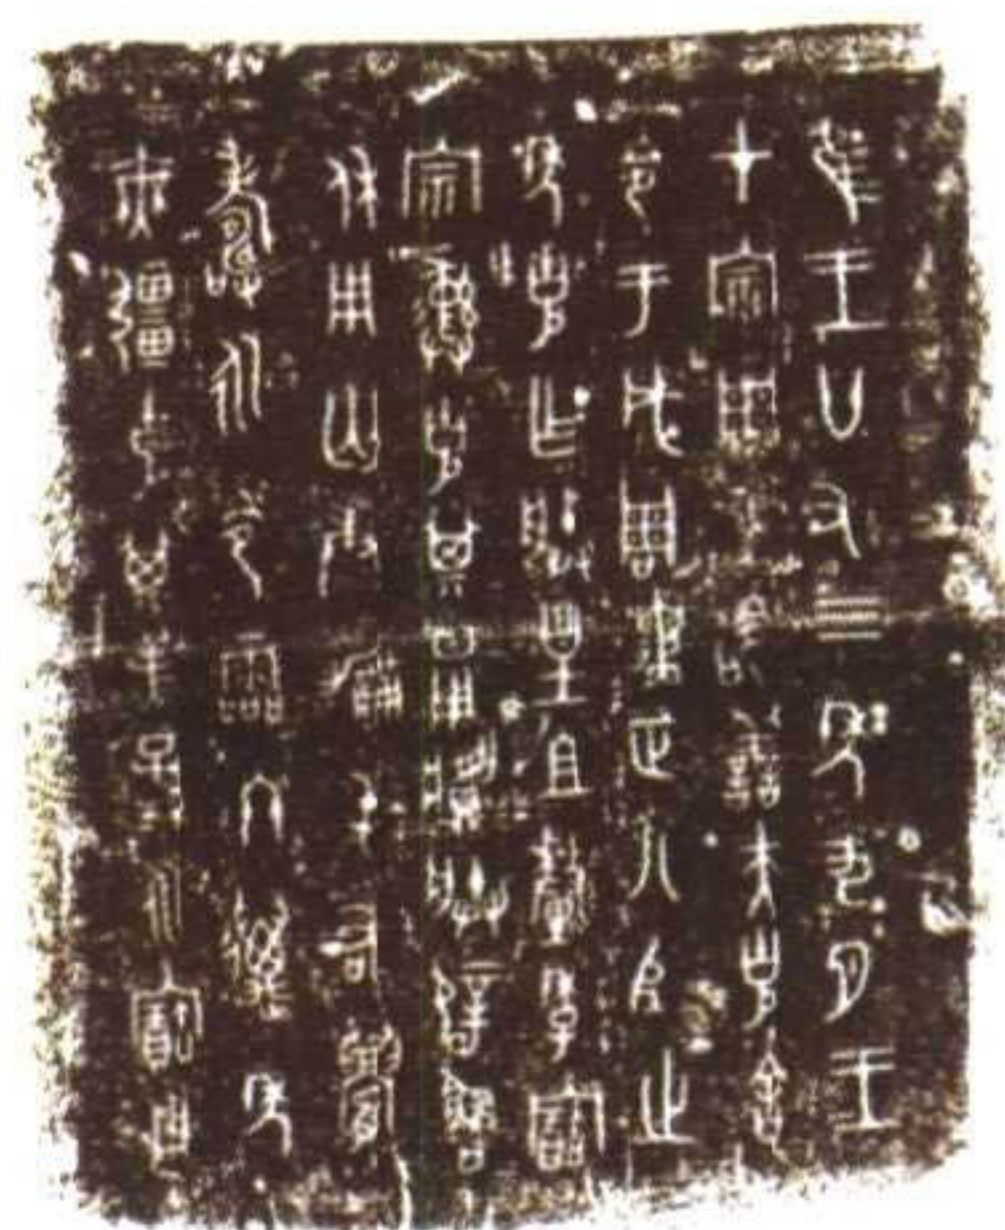 隹王廿又三年九月王
才宗周王命善夫克舍
令于成周遹正八𠂤之
年克乍朕皇且釐季寶
宗彝克其日用朕辟魯
休用匄康屯右眉
壽永令霝冬萬年
無疆克其子子孫孫永寶用